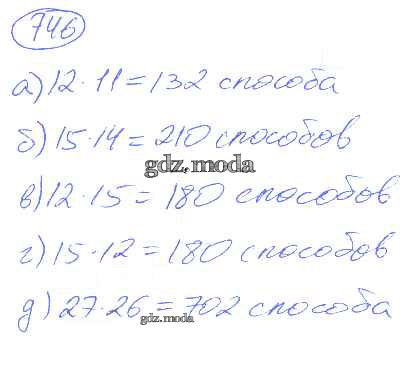 746
а) 12 · 11 = 132 способа
б) 15 · 14 = 210 способов
gdz.moda
в) 12 · 15 = 180 способов
г) 15 · 12 = 180 способов
д) 27 · 26 = 702 способа
gdz.moda